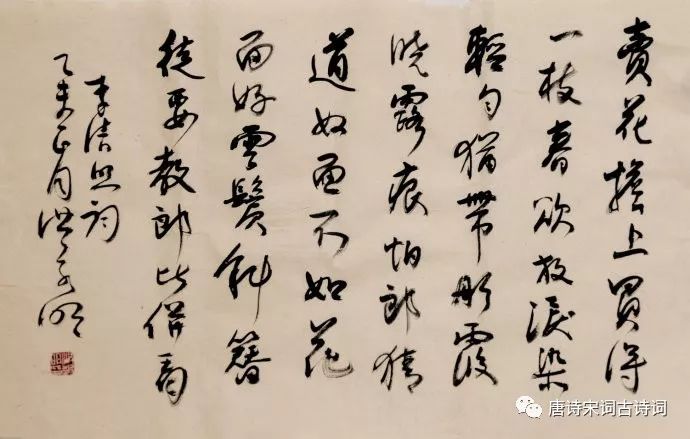 賣花擔上買得
一枝春欲放淚染
輕勻猶帶彤霞
曉露痕怕郎猜
道奴面不如花
面好雲鬢斜簪
徒要教郎比併看
李清照詞
乙未正月洪
唐诗宋词古诗词